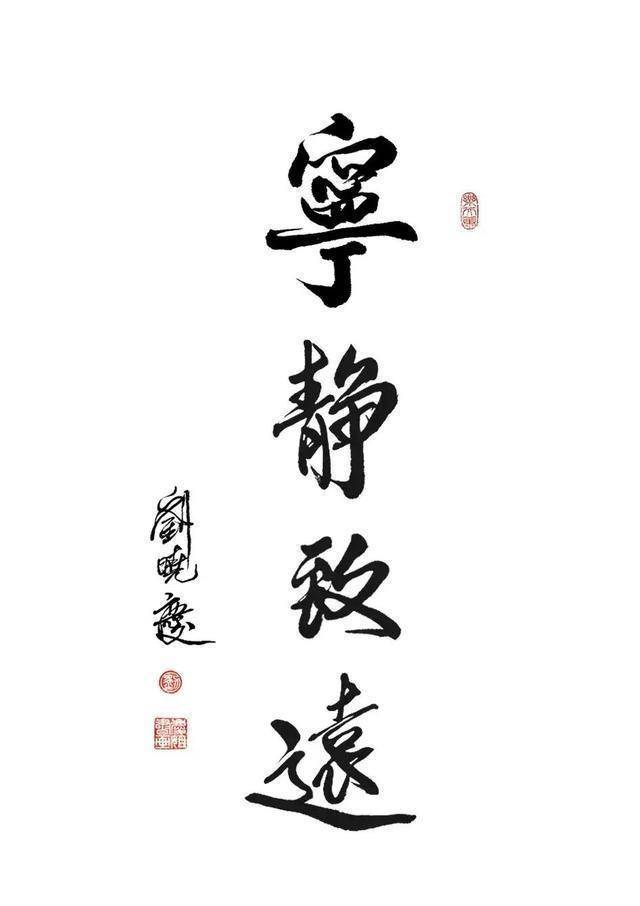 寧靜致遠
劉曉慶